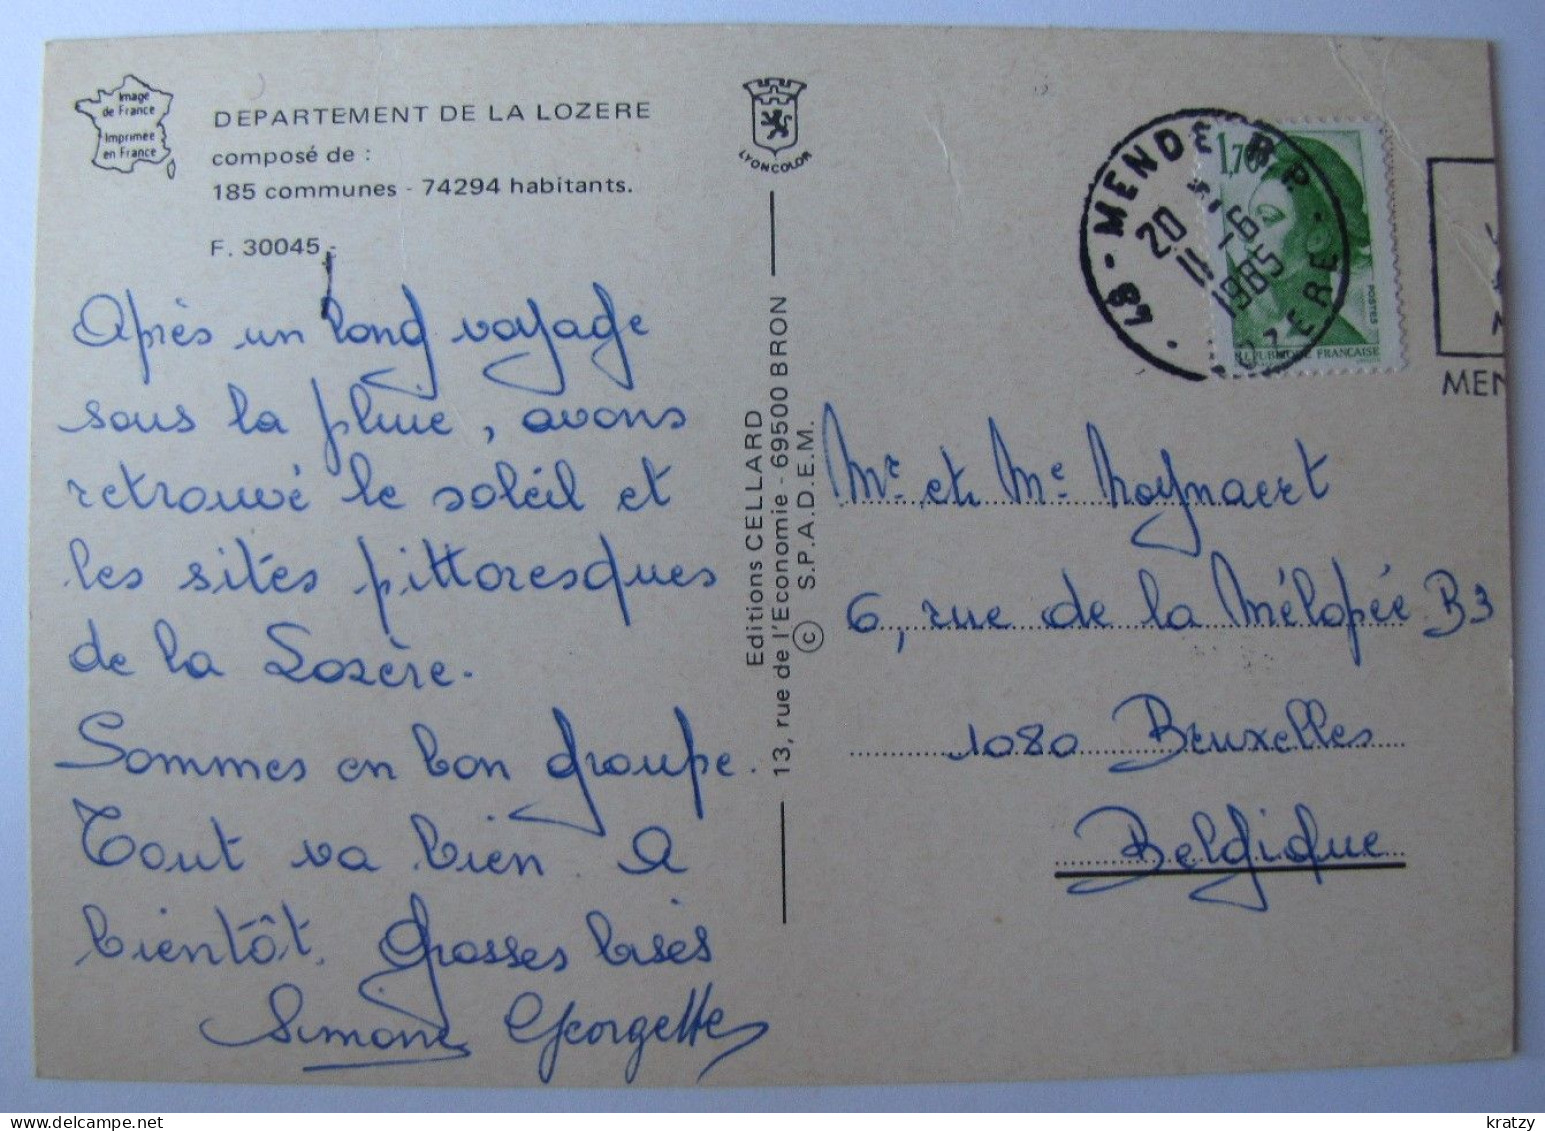 Image
de France
Imprimée
en France
DEPARTEMENT DE LA LOZERE
composé de :
185 communes - 74294 habitants.
F. 30045 -
Après un long voyage
sous la pluie, avons
retrouvé le soleil et
les sites pittoresques
de la Lozère.
Sommes en bon groupe.
Tout va bien. A
bientôt. Grosses bises
Simone Georgette
LYONCOLOR
Editions CELLARD
13, rue de l'Economie - 69500 BRON
© S.P.A.D.E.M.
48 - MENDE R.P.
20 H
-6
1985
LOZERE
1,70
POSTES
REPUBLIQUE FRANCAISE
MEN
Mr et Me Moynaert
6, rue de la Mélopée B3
1080 Bruxelles
Belgique
kratzy